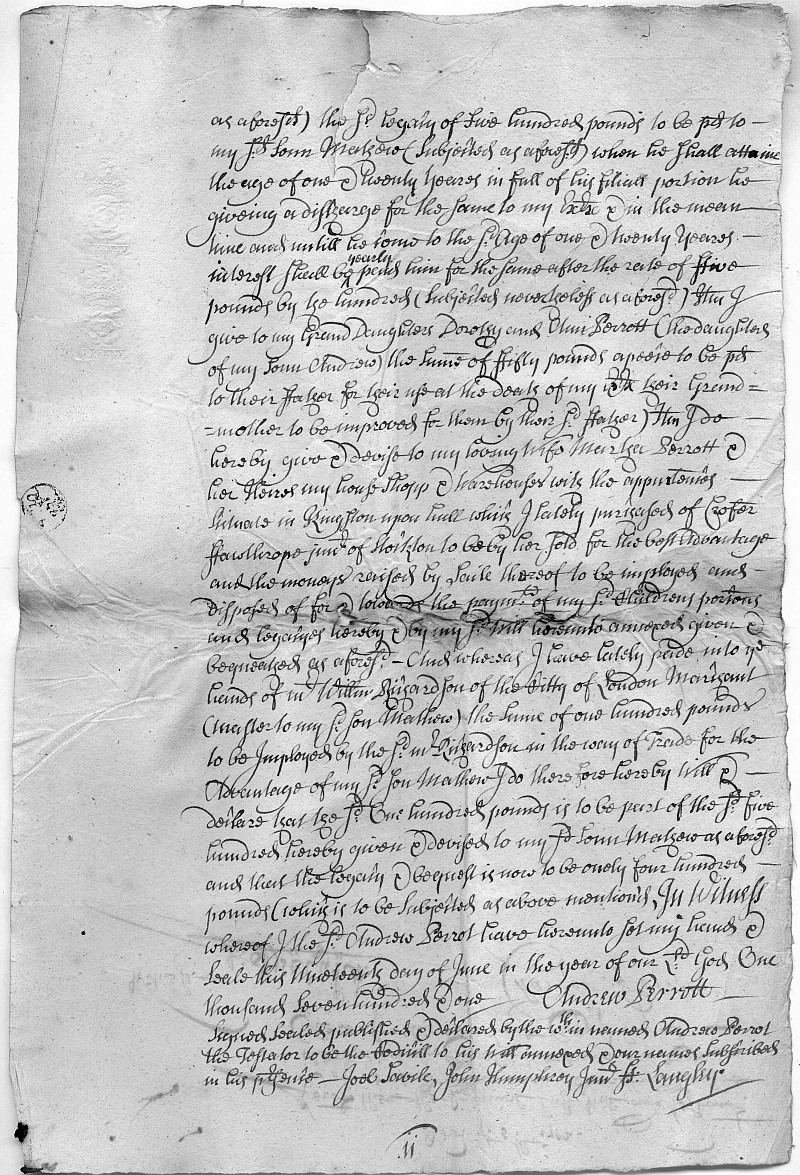 as aforesd) the sd legacy of five hundred pounds to be pd to
my sd sonn Mathew (subjected as aforesd) when he shall attaine
the age of one & twenty yeares in full of his filiall portion he
giveing a discharge for the same to my Exix & in the mean
time and untill he come to the sd Age of one & twenty yeares
interest shall be yearly paid him for the same after the rate of ffive
pounds by the hundred (subjected nevertheless as aforesd) Itm I
give to my Grand Daughters Dorothy and Ann Perrott (the daughters
of my sonn Andrew) the sume of fifty pounds apeece to be pd
to their ffather for their use at the death of my their Grand=
=mother to be improved for them by their sd ffather) Itm I do
hereby give & devise to my loving wife Martha Perrott &
her Heires my house Shopp & warehouses with the appurtences
situate in Kingston upon hull which I lately purchased of Xtofer
Hawthrope junr of Stockton to be by her sold for the best Advantage
and the moneys raised by saile thereof to be imployed and
disposed of for & towards the paymt of my sd Childrens portions
and legacyes hereby & by my sd will hereunto annexed given &
bequeathed as aforesd - And whereas I have lately paide into ye
hands of mr Willm Richardson of the Citty of London Marchant
(master to my sd son Mathew) the sume of one hundred pounds
to be Imployed by the sd mr Richardson in the way of Trade for the
Advantage of my sd son Mathew I do therefore hereby will &
declare that the sd One hundred pounds is to be part of the sd five
hundred hereby given & devised to my sd sonn Mathew as aforesd
and that the legacy & bequest is now to be onely four hundred
pounds (which is to be subjected as above mentiond, In Witness
whereof I the sd Andrew Perrot have hereunto set my hand &
seale this Nineteenth day of June in the year of our Ld God One
thousand seven hundred & one Andrew Perrott
Signed sealed published & declared by the within named Andrew Perrot
the Testator to be the Codicill to his will annexed & our names subscribed
in his presence - Joel Savile, John Humphrey Junr ff: Langley.
11